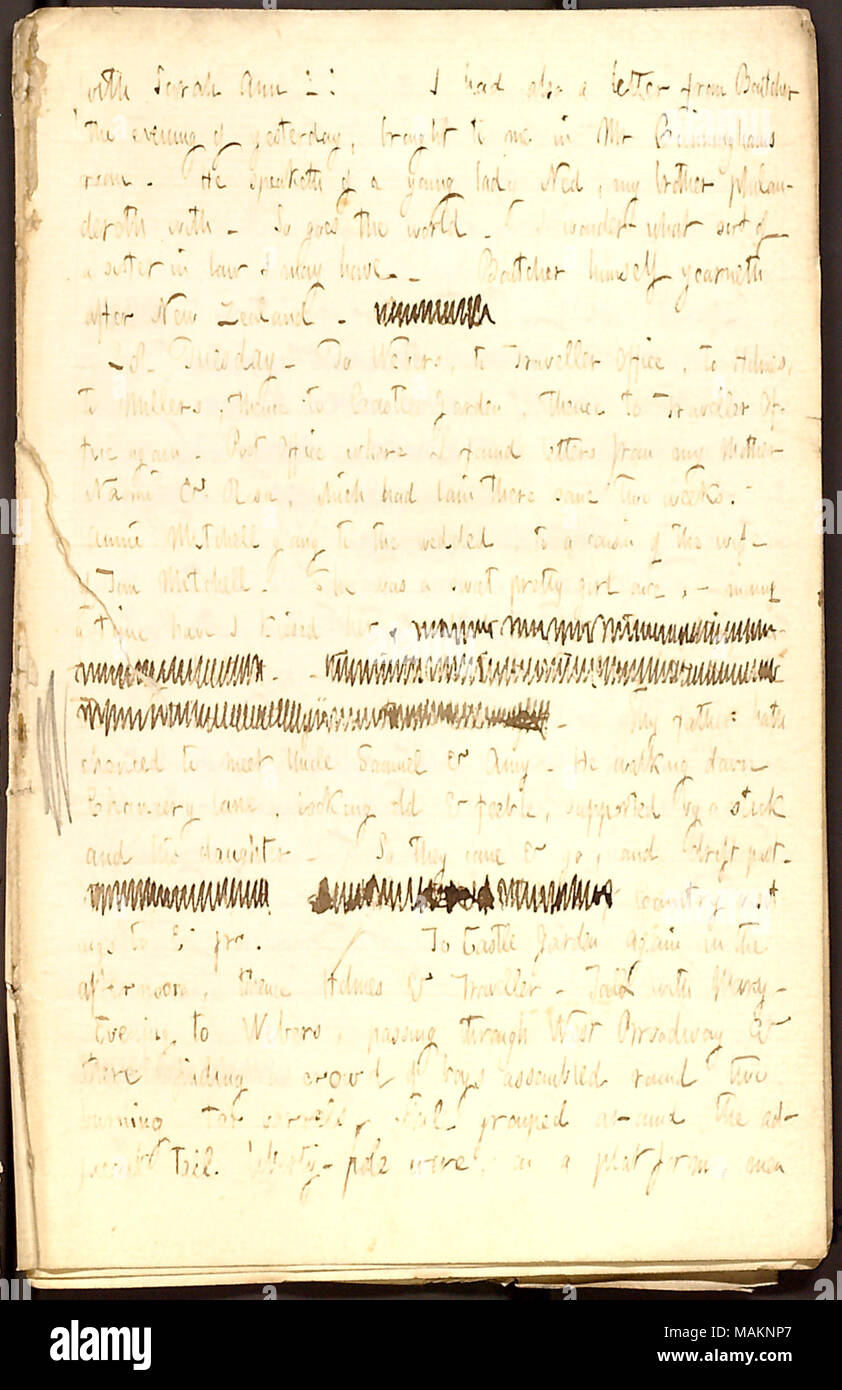 with Sarah Ann !! I had also a letter from Boutcher
the evening of yesterday, brought to me in Mr
room. He speaketh of a young lady Ned, my brother philan-
dereth with. So goes the world. I wonder what sort of
a sister in law I may have. Boutcher himself yearneth
after New Zealand.
8. Tuesday. To Webers, to Traveller Office, to Holmes,
to Millers, thence to Castle Garden, thence to Traveller Of-
fice again. Post Office where I found letters from my Mother
Naomi & Rosa, which had lain there some two weeks.
Annie Mitchell going to the wedded, to a cousin of the wife
of Tom Mitchell. She was a sweet pretty girl once, many
a time have I kissed her.
My father hath
chanced to meet Uncle Samuel & Amy. He walking down
Chancery lane, looking old & feeble, supported by a stick
and his daughter. So they come & go, and drift past.
country
To Castle Garden again in the
afternoon, thence Holmes & Traveller. Talk with Mary.
Evening, to Webers, passing through West Broadway &
there finding a crowd of boys assembled round two
burning tar barrels, grouped around the ad-
jacent liberty-pole were, on a platform, men
alamy
Image ID: MAKNP7
www.alamy.com